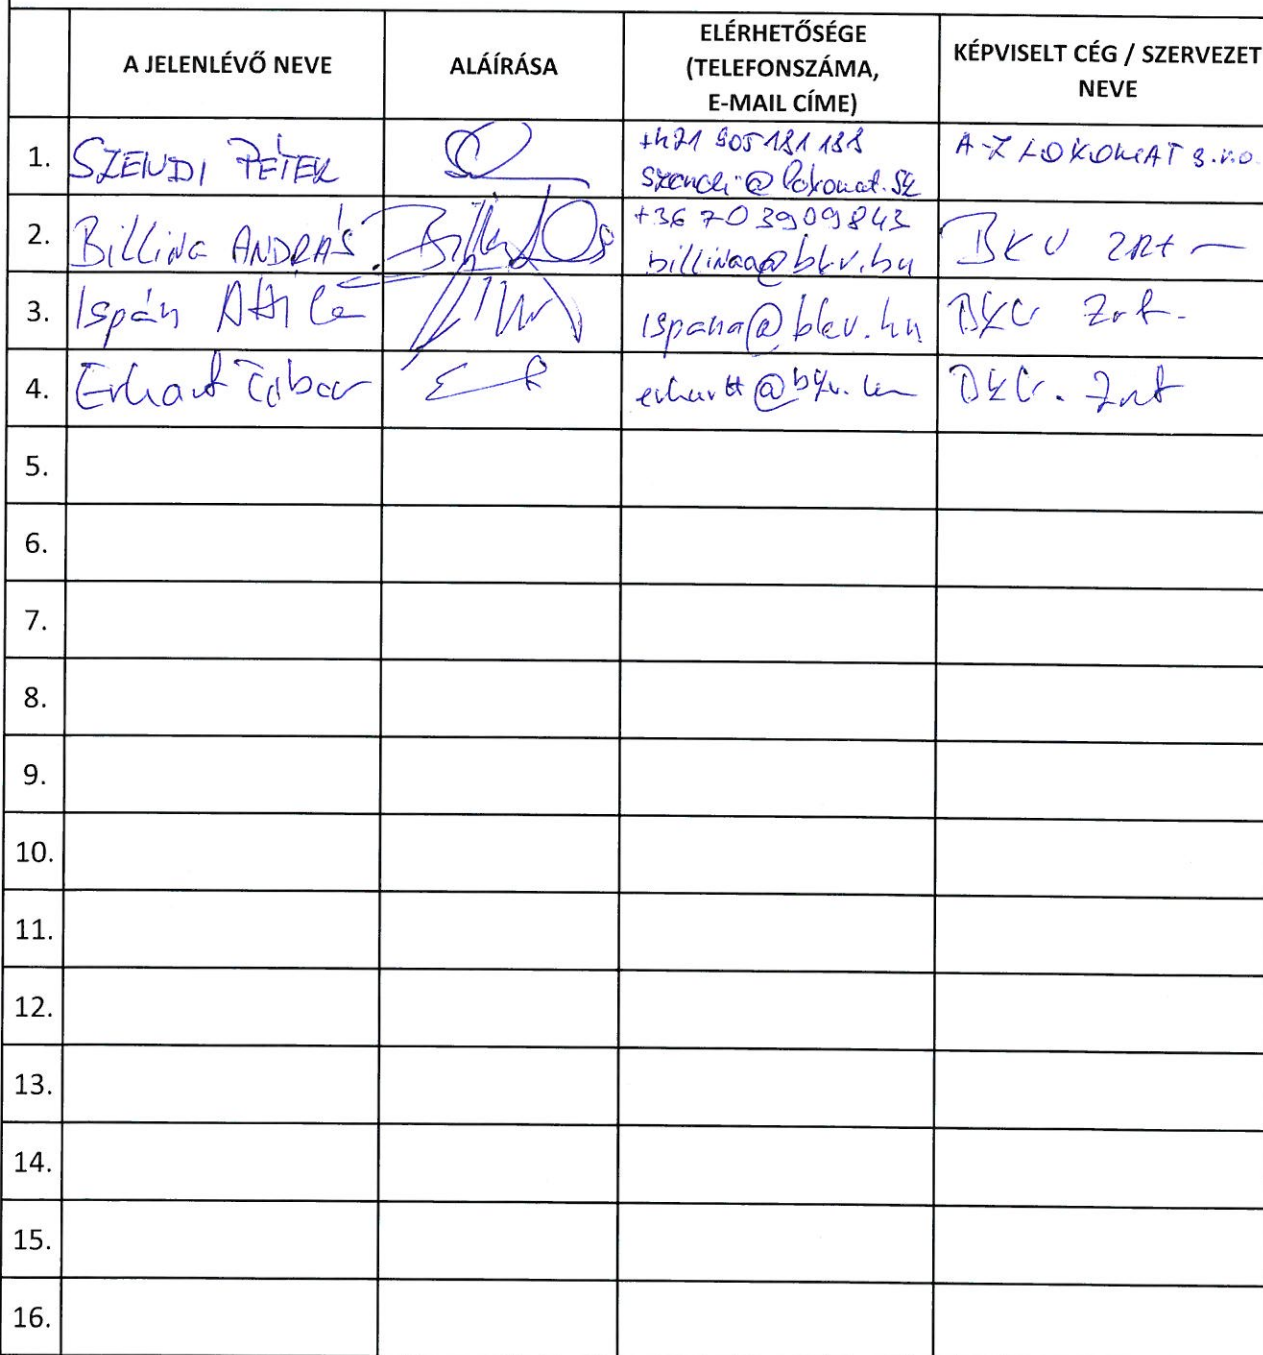 A JELENLÉVŐ NEVE
ALÁÍRÁSA
ELÉRHETŐSÉGE
(TELEFONSZÁMA,
E-MAIL CÍME)
KÉPVISELT CÉG / SZERVEZET
NEVE
1.
SZENDI PÉTER
+421 905 181 188
szendi@lokomat.sk
A-Z LOKOMAT s.r.o.
2.
Billing ANDRÁS
+36 70 3909843
billinga@bkv.hu
BKV ZRt
3.
Ispán Attila
ispana@bkv.hu
BKV Zrt.
4.
Erhart Tibor
erhartt@bkv.hu
BKV. Zrt
5.
6.
7.
8.
9.
10.
11.
12.
13.
14.
15.
16.